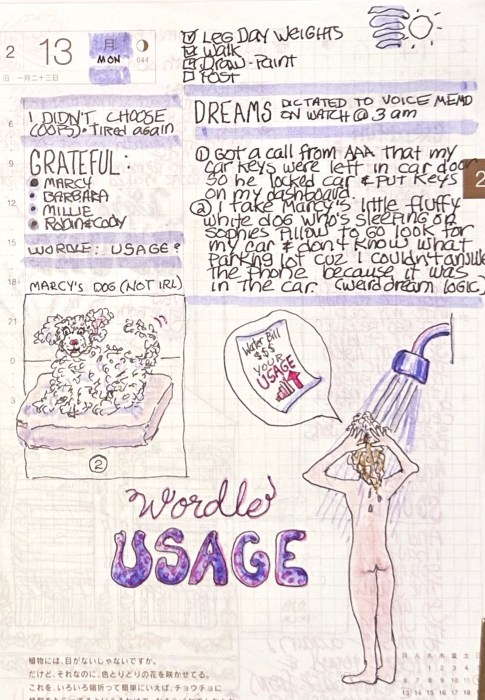 2 13 月 MON 044
日 一月二十三日
LEG DAY WEIGHTS
WALK
DRAW-PAINT
POST
I DIDN'T CHOOSE
(OOPS). TIRED again
DREAMS DICTATED TO VOICE MEMO
ON WATCH @ 3am
GRATEFUL:
MARCY
BARBARA
MILLIE
Robin & Cody
WORDLE: USAGE?
① GOT a CALL FROM AAA THAT my
CAR KEYS WERE LEFT IN CAR DOOR
SO he locked CAR & PUT KEYS
ON my DASHBOARD
② I TAKE MARCY'S LITTLE FLUFFY
WHITE DOG WHO'S SLEEPING ON
SOPHIES PILLOW TO GO LOOK FOR
MY CAR & DON'T KNOW WHAT
PARKING LOT CUZ I COULDN'T ANSWER
THE PHONE BECAUSE IT WAS
IN THE CAR. (WEIRD DREAM LOGIC)
MARCY'S DOG (NOT IRL)
6
9
12
15
18
21
0
3
2
②
Water Bill
$$$
YOUR
USAGE
Wordle
USAGE
植物には、目がないじゃないですか。
だけど、それなのに、色とりどりの花を咲かせてる。
これを、いろいろ端折って簡単にいえば、チョウチョに